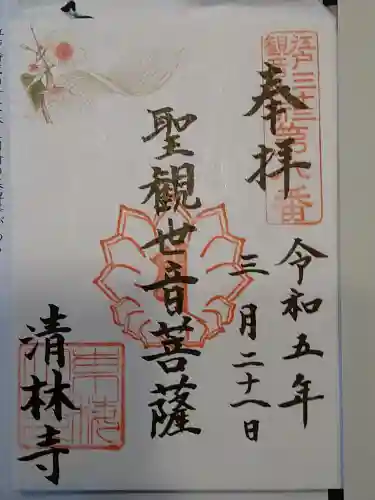 奉拝
江戸三十三
観音第八番
令和五年
三月二十一日
聖観世音菩薩
清林寺